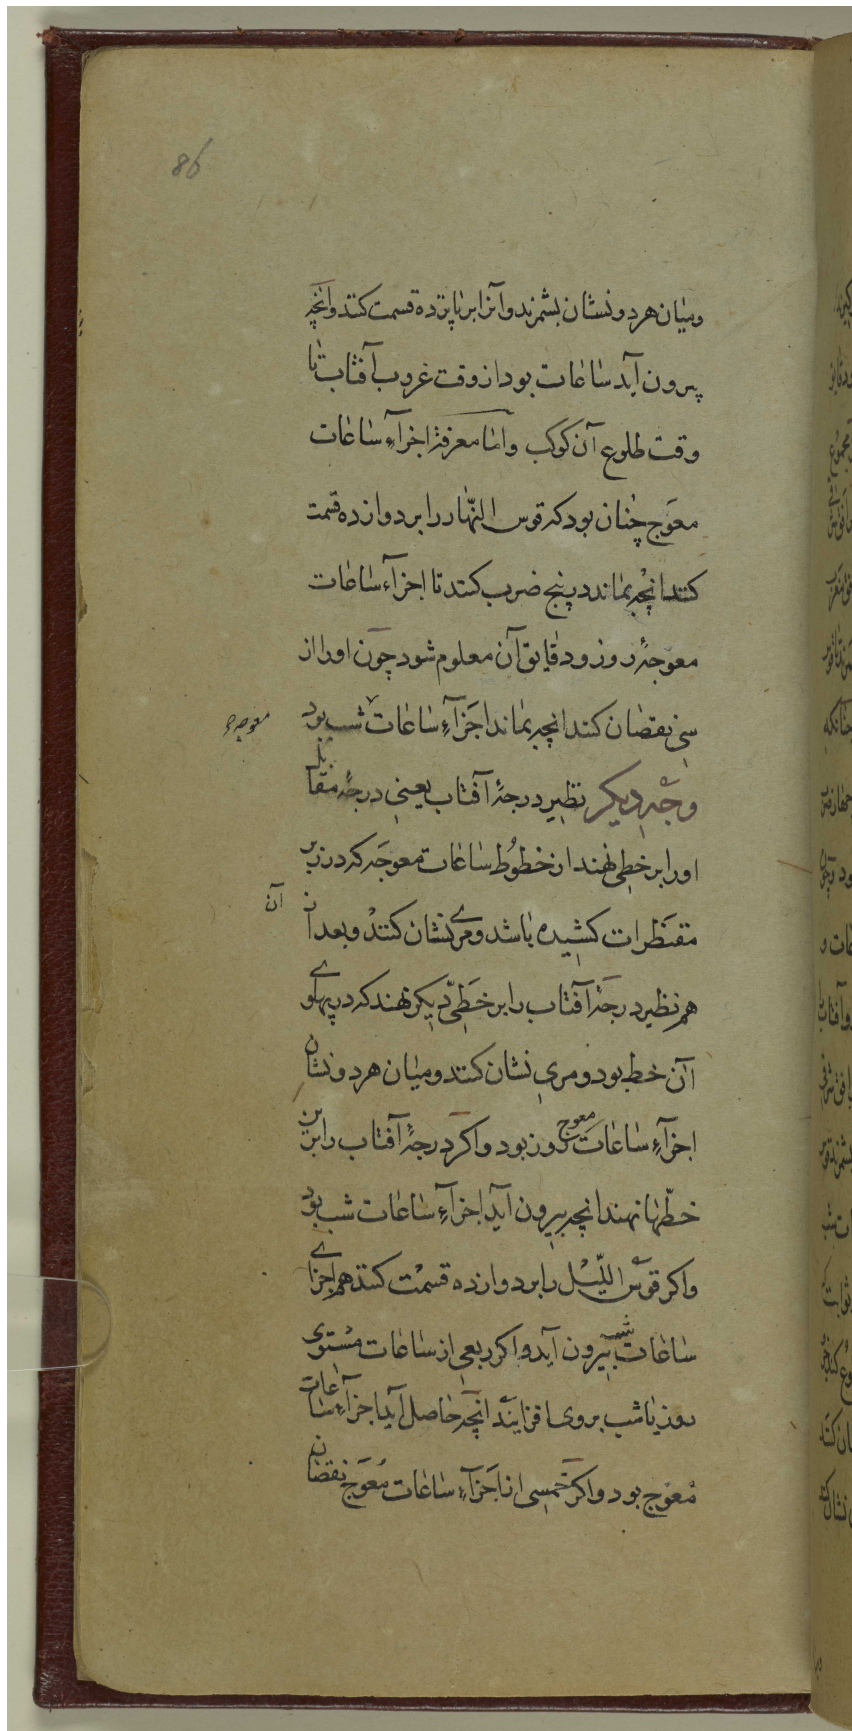 86
ومیان هر دو نشان بشمرند و آنرا بر پانزده قسمت کنند وانچه
بیرون آید ساعات بود از وقت غروب آفتاب تا
وقت طلوع آن کوکب واما معرفة اجزآء ساعات
معوّج چنان بود که قوس النّهار را بر دوازده قسمت
کنند انچه بماند در پنج ضرب کنند تا اجزآء ساعات
معوجهٔ روز و دقایق آن معلوم شود چون اورا از
سی نقصان کنند انچه بماند اجزآءِ ساعات شب بود
معوجه
وجه دیکر نظیر درجهٔ آفتاب یعنی درجهٔ مقابل
اورا بر خطی نهند از خطوط ساعات معوجه که در زیر
مقنطرات کشیده باشد و مری نشان کنند و بعد از
آن
هم نظیر درجهٔ آفتاب را بر خطی دیکر نهند که در پهلوی
آن خط بود و مری نشان کنند و میان هر دو نشان
اجزآءِ ساعات معوج روز بود و اکر درجهٔ آفتاب را برین
خطّها نهند انچه بیرون آید اجزآءِ ساعات شب بود
واکر قوس اللّیل را بر دوازده قسمت کنند هم اجزای
ساعات شب بیرون آید واکر ربعی از ساعات مستوی
روز یا شب بر وی افزایند انچه حاصل آید اجزآءِ ساعات
معوّج بود واکر خمسی از اجزآءِ ساعات معوّج نقصان